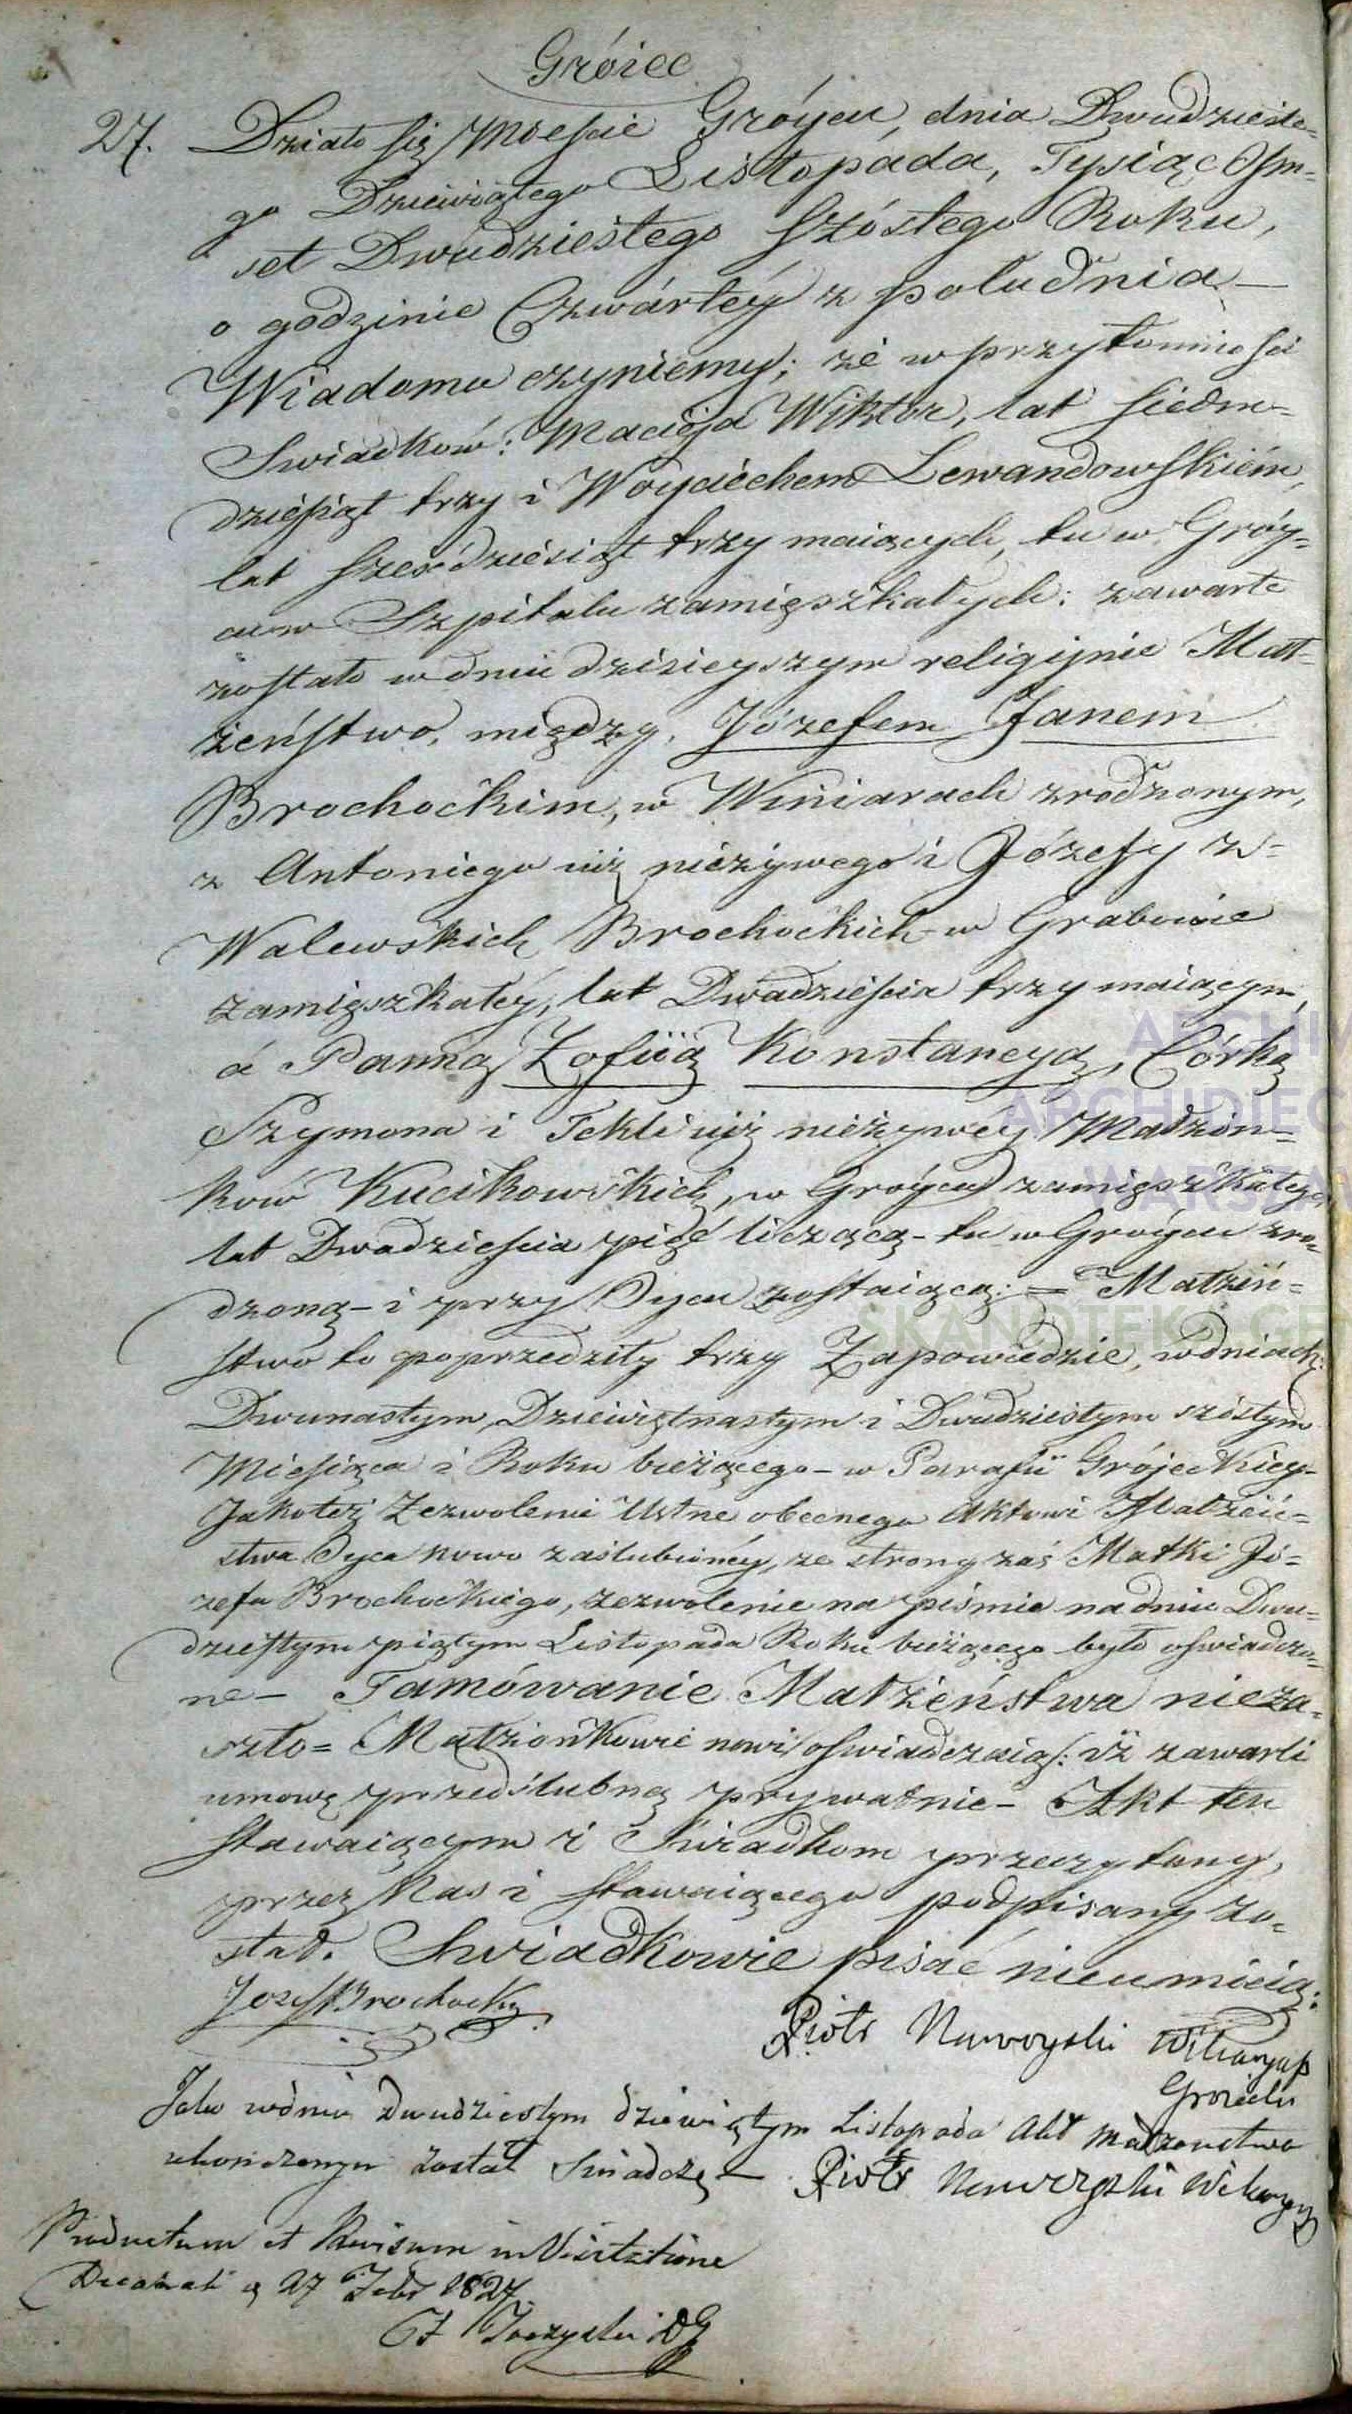 Gróiec
27. Działo się Mieście Gróycu, dnia Dwudzieste-
go Dziewiątego Listopada, Tysiąc Ośm-
set Dwudziestego szóstego Roku,
o godzinie Czwártey z południa —
Wiadomo czyniemy; że w przytomności
Swiadków: Macieja Wiktor, lat siedm-
dziesiąt trzy i Woyciechem Lewandowskiém,
lat sześćdziesiąt trzy maiących, tu w Gróy-
cu w Szpitalu zamięszkałych: zawarte
zostało w dniu dzisieyszym religijnie Mał-
żeństwo, między, Józefem Janem
Brochockim, w Winiarach zrodzonym,
z Antoniego iuż nieżywego i Józefy z-
Walewskich Brochockich w Grabowie
zamięszkałey, lat Dwadzieścia trzy maiącym,
á Panną Zofiią Konstancyą, Córką
Szymona i Tekli iuż nieżywéy Małżon-
ków Kucikowskich, w Gróycu zamięszkałych,
lat Dwadzieścia pięć liczącą - tu w Gróycu zro-
dzoną - i przy Oycu zostaiącą: = Małżeń-
stwo to poprzedziły trzy Zapowiedzie, w dniach:
Dwunastym, Dziewiętnastym i Dwudziestym szóstym
Miesiąca i Roku bieżącego - w Parafii Grójeckiey -
Jakoteż Zezwolenie Ustne obecnego Aktowi Małżeń-
stwa Oyca nowo zaślubionéy, ze strony zaś Matki Jó-
zefa Brochockiego, zezwolenie na piśmie na dniu Dwu-
dziestym piątym Listopada Roku bieżącego było oświadczo-
ne - Tamówanie Małżeństwa nieza-
szło = Małżonkowie nowi oświadczaią: iż zawarli
umowę przedślubną prywatnie - Akt ten
stawaiącym i Świadkom przeczytany,
przez Nas i stawaiącego podpisany zo-
stał. Swiadkowie pisać nieumieią:
Jozef Brochocki
Piotr Nawrycki Wikaryusz
Jako w dniu dwudziestym dziewiątym Listopada Akt Małzenstwa
ukończonym został swiadczę — Piotr Nawrycki Wikaryusz
Productum et Revisum in Visitatione
Decanali d 27 Febr 1827.